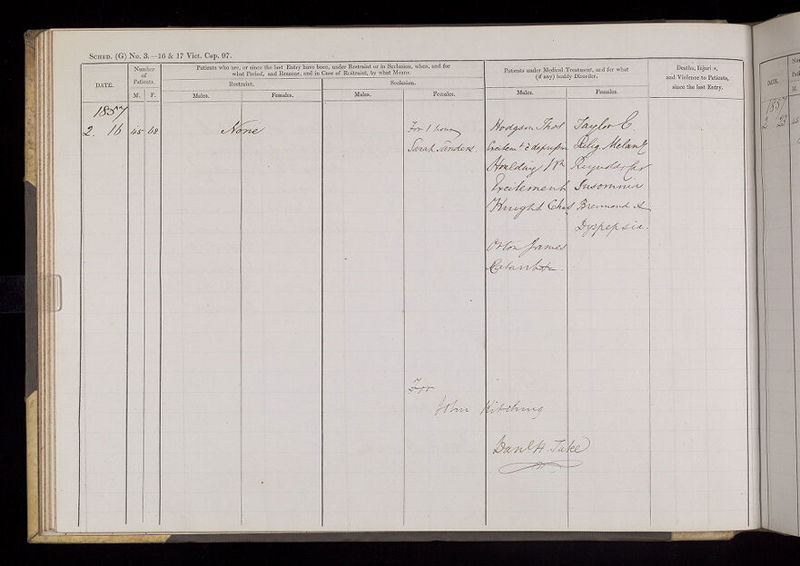 SCHED. (G) No. 3.—16 & 17 Vict. Cap. 97.
DATE.
Number of Patients.
M. F.
Patients who are, or since the last Entry have been, under Restraint or in Seclusion, when, and for
what Period, and Reasons, and in Case of Restraint, by what Means.
Restraint.
Seclusion.
Males. Females. Males. Females.
Patients under Medical Treatment, and for what
(if any) bodily Disorder.
Males. Females.
Deaths, Injuries,
and Violence to Patients,
since the last Entry.
1857
2. 16 45 62 None For 1 hour Hodgson Thos Taylor C.
Sarah Sanders Relig. Melanc
Reynolds
Excitement Insomnia
Knight Chas
Dyspepsia.
Orton James
For
John Kitching
Danl H. Tuke
DATE.
M.
1857
2 23 45